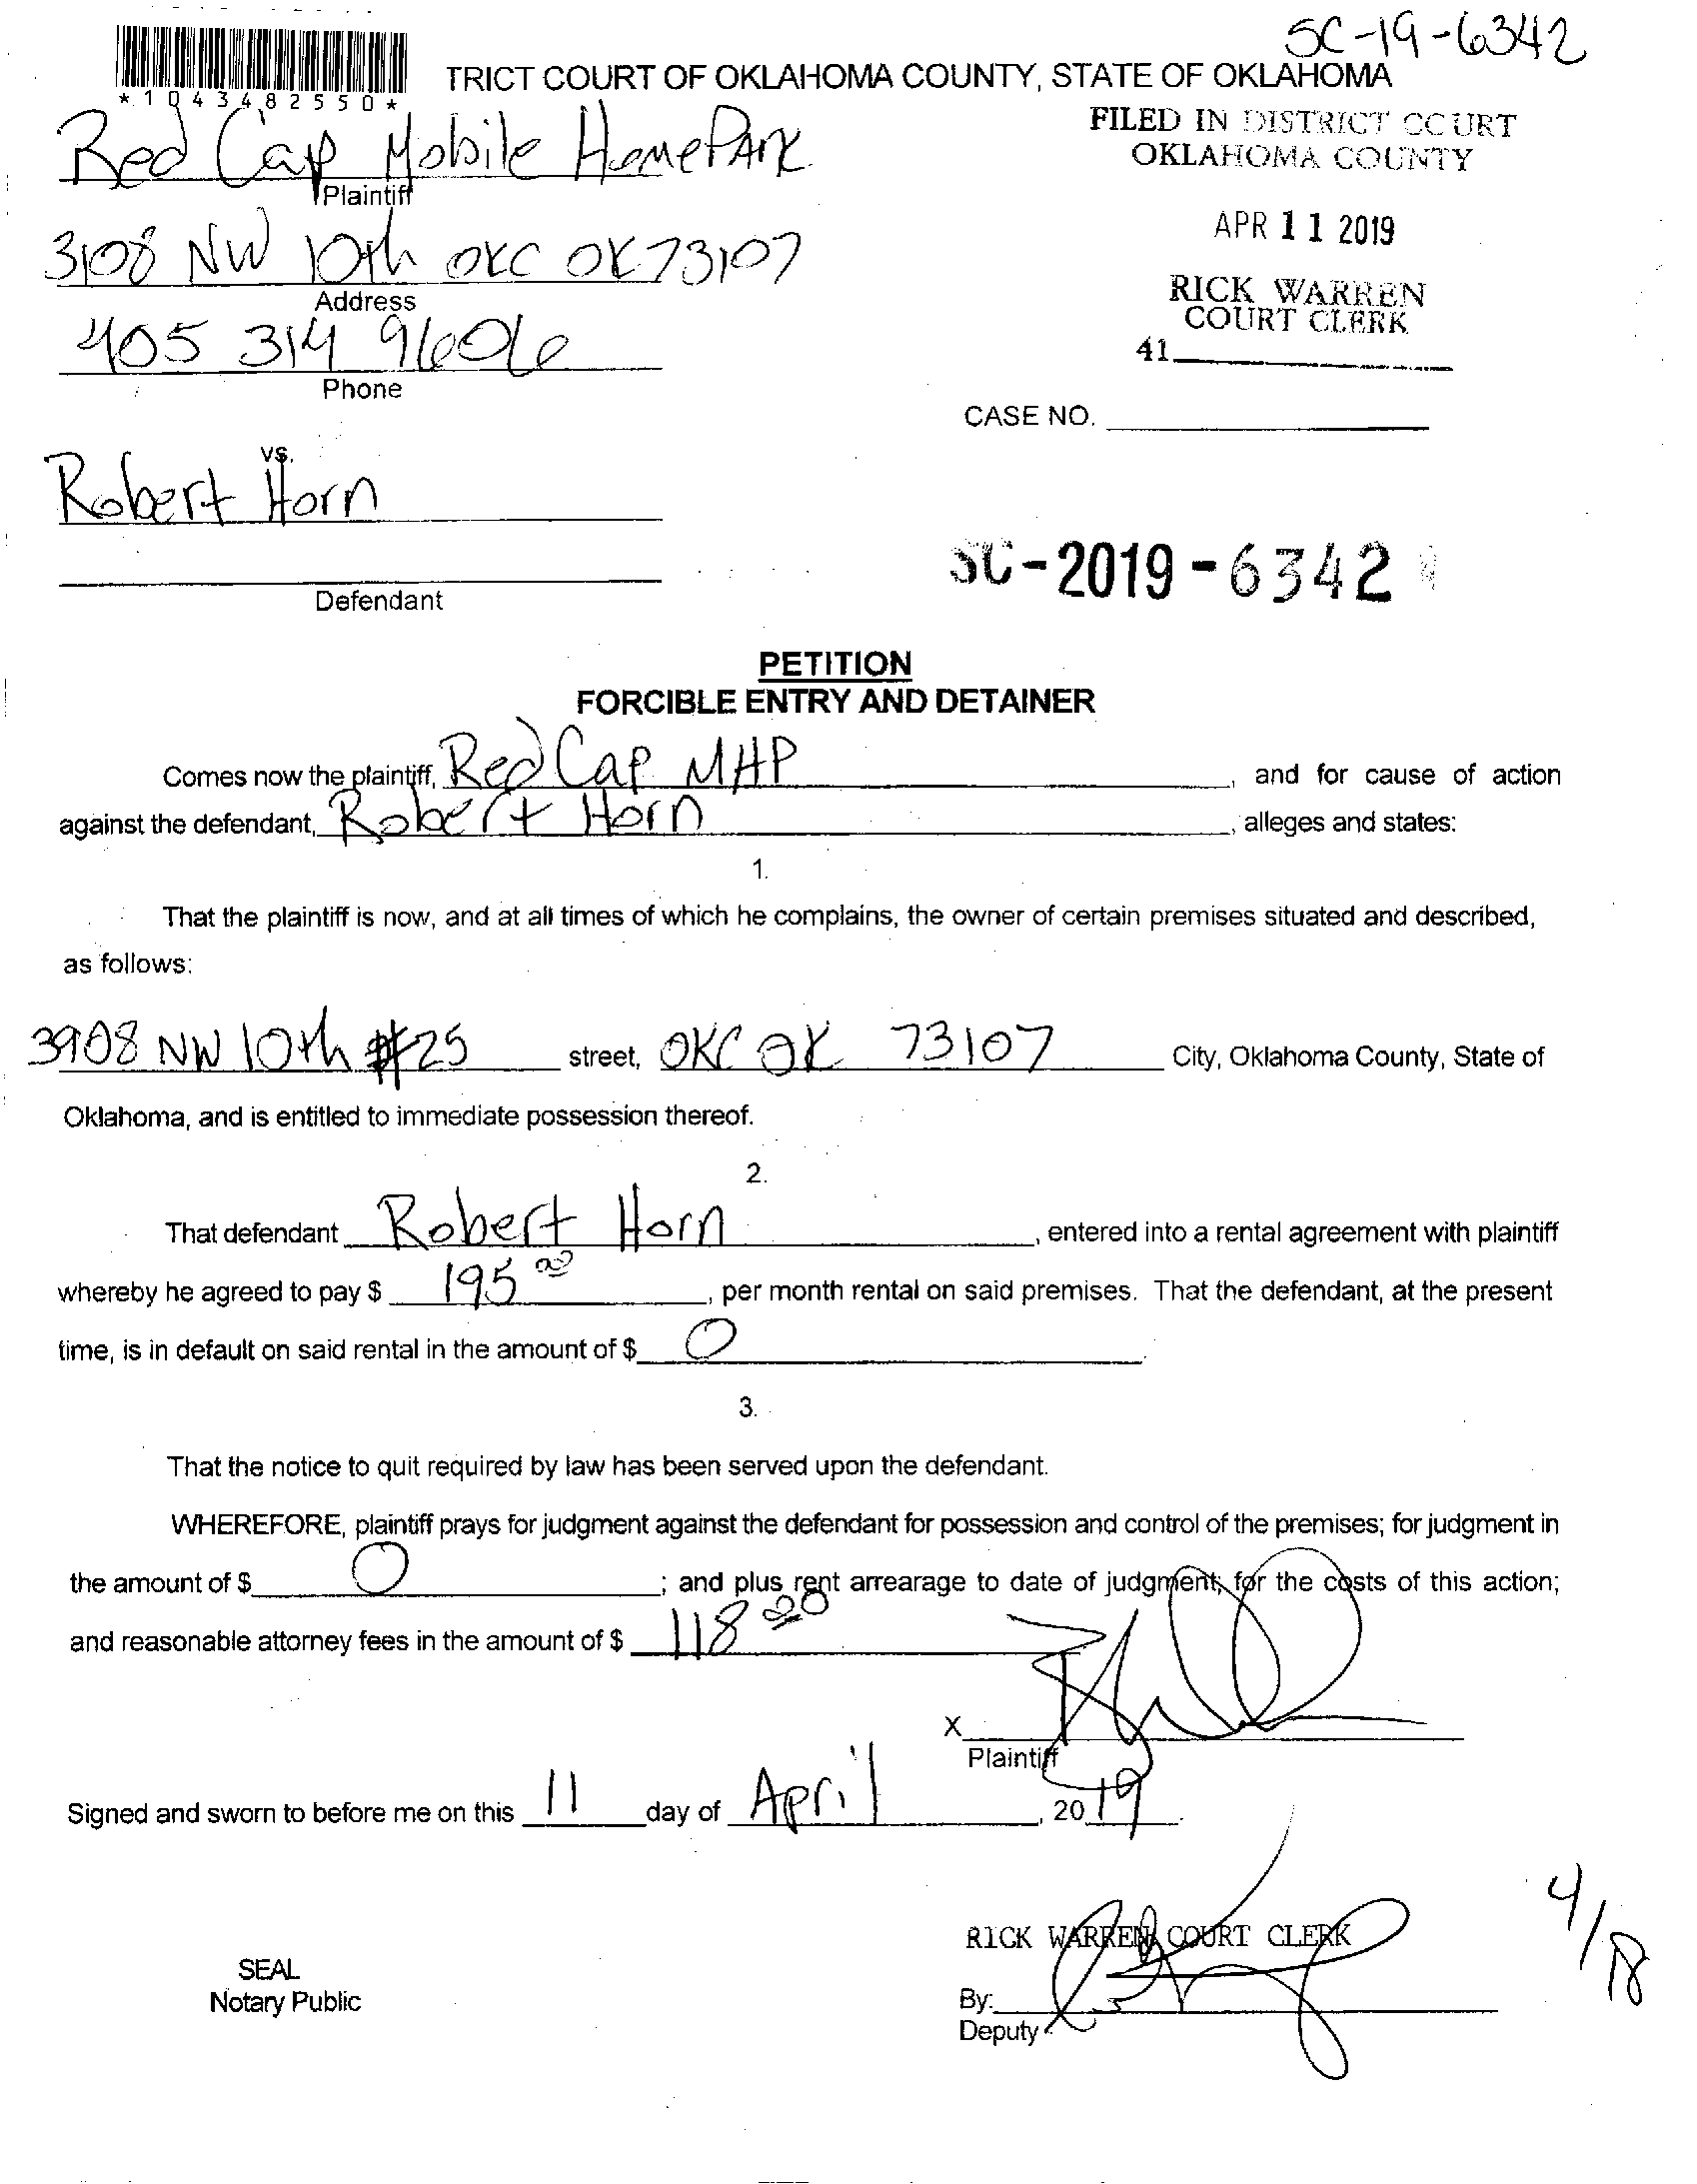 SC-19-6342
*1043482550*
TRICT COURT OF OKLAHOMA COUNTY, STATE OF OKLAHOMA
Red Cap Mobile HomePark
Plaintiff
FILED IN DISTRICT COURT
OKLAHOMA COUNTY
3108 NW 10th OKC OK 73107
Address
APR 11 2019
405 314 9606
Phone
RICK WARREN
COURT CLERK
41
CASE NO.
vs.
Robert Horn
Defendant
SC-2019-6342
PETITION
FORCIBLE ENTRY AND DETAINER
Comes now the plaintiff, Red Cap MHP, and for cause of action
against the defendant, Robert Horn, alleges and states:
1.
That the plaintiff is now, and at all times of which he complains, the owner of certain premises situated and described,
as follows:
3908 NW 10th #25 street, OKC OK 73107 City, Oklahoma County, State of
Oklahoma, and is entitled to immediate possession thereof.
2.
That defendant Robert Horn, entered into a rental agreement with plaintiff
whereby he agreed to pay $ 195 00, per month rental on said premises. That the defendant, at the present
time, is in default on said rental in the amount of $ 0.
3.
That the notice to quit required by law has been served upon the defendant.
WHEREFORE, plaintiff prays for judgment against the defendant for possession and control of the premises; for judgment in
the amount of $ 0; and plus rent arrearage to date of judgment; for the costs of this action;
and reasonable attorney fees in the amount of $ 118 00
X
Plaintiff
Signed and sworn to before me on this 11 day of April, 20 19.
4/18
RICK WARREN COURT CLERK
SEAL
Notary Public
By:
Deputy